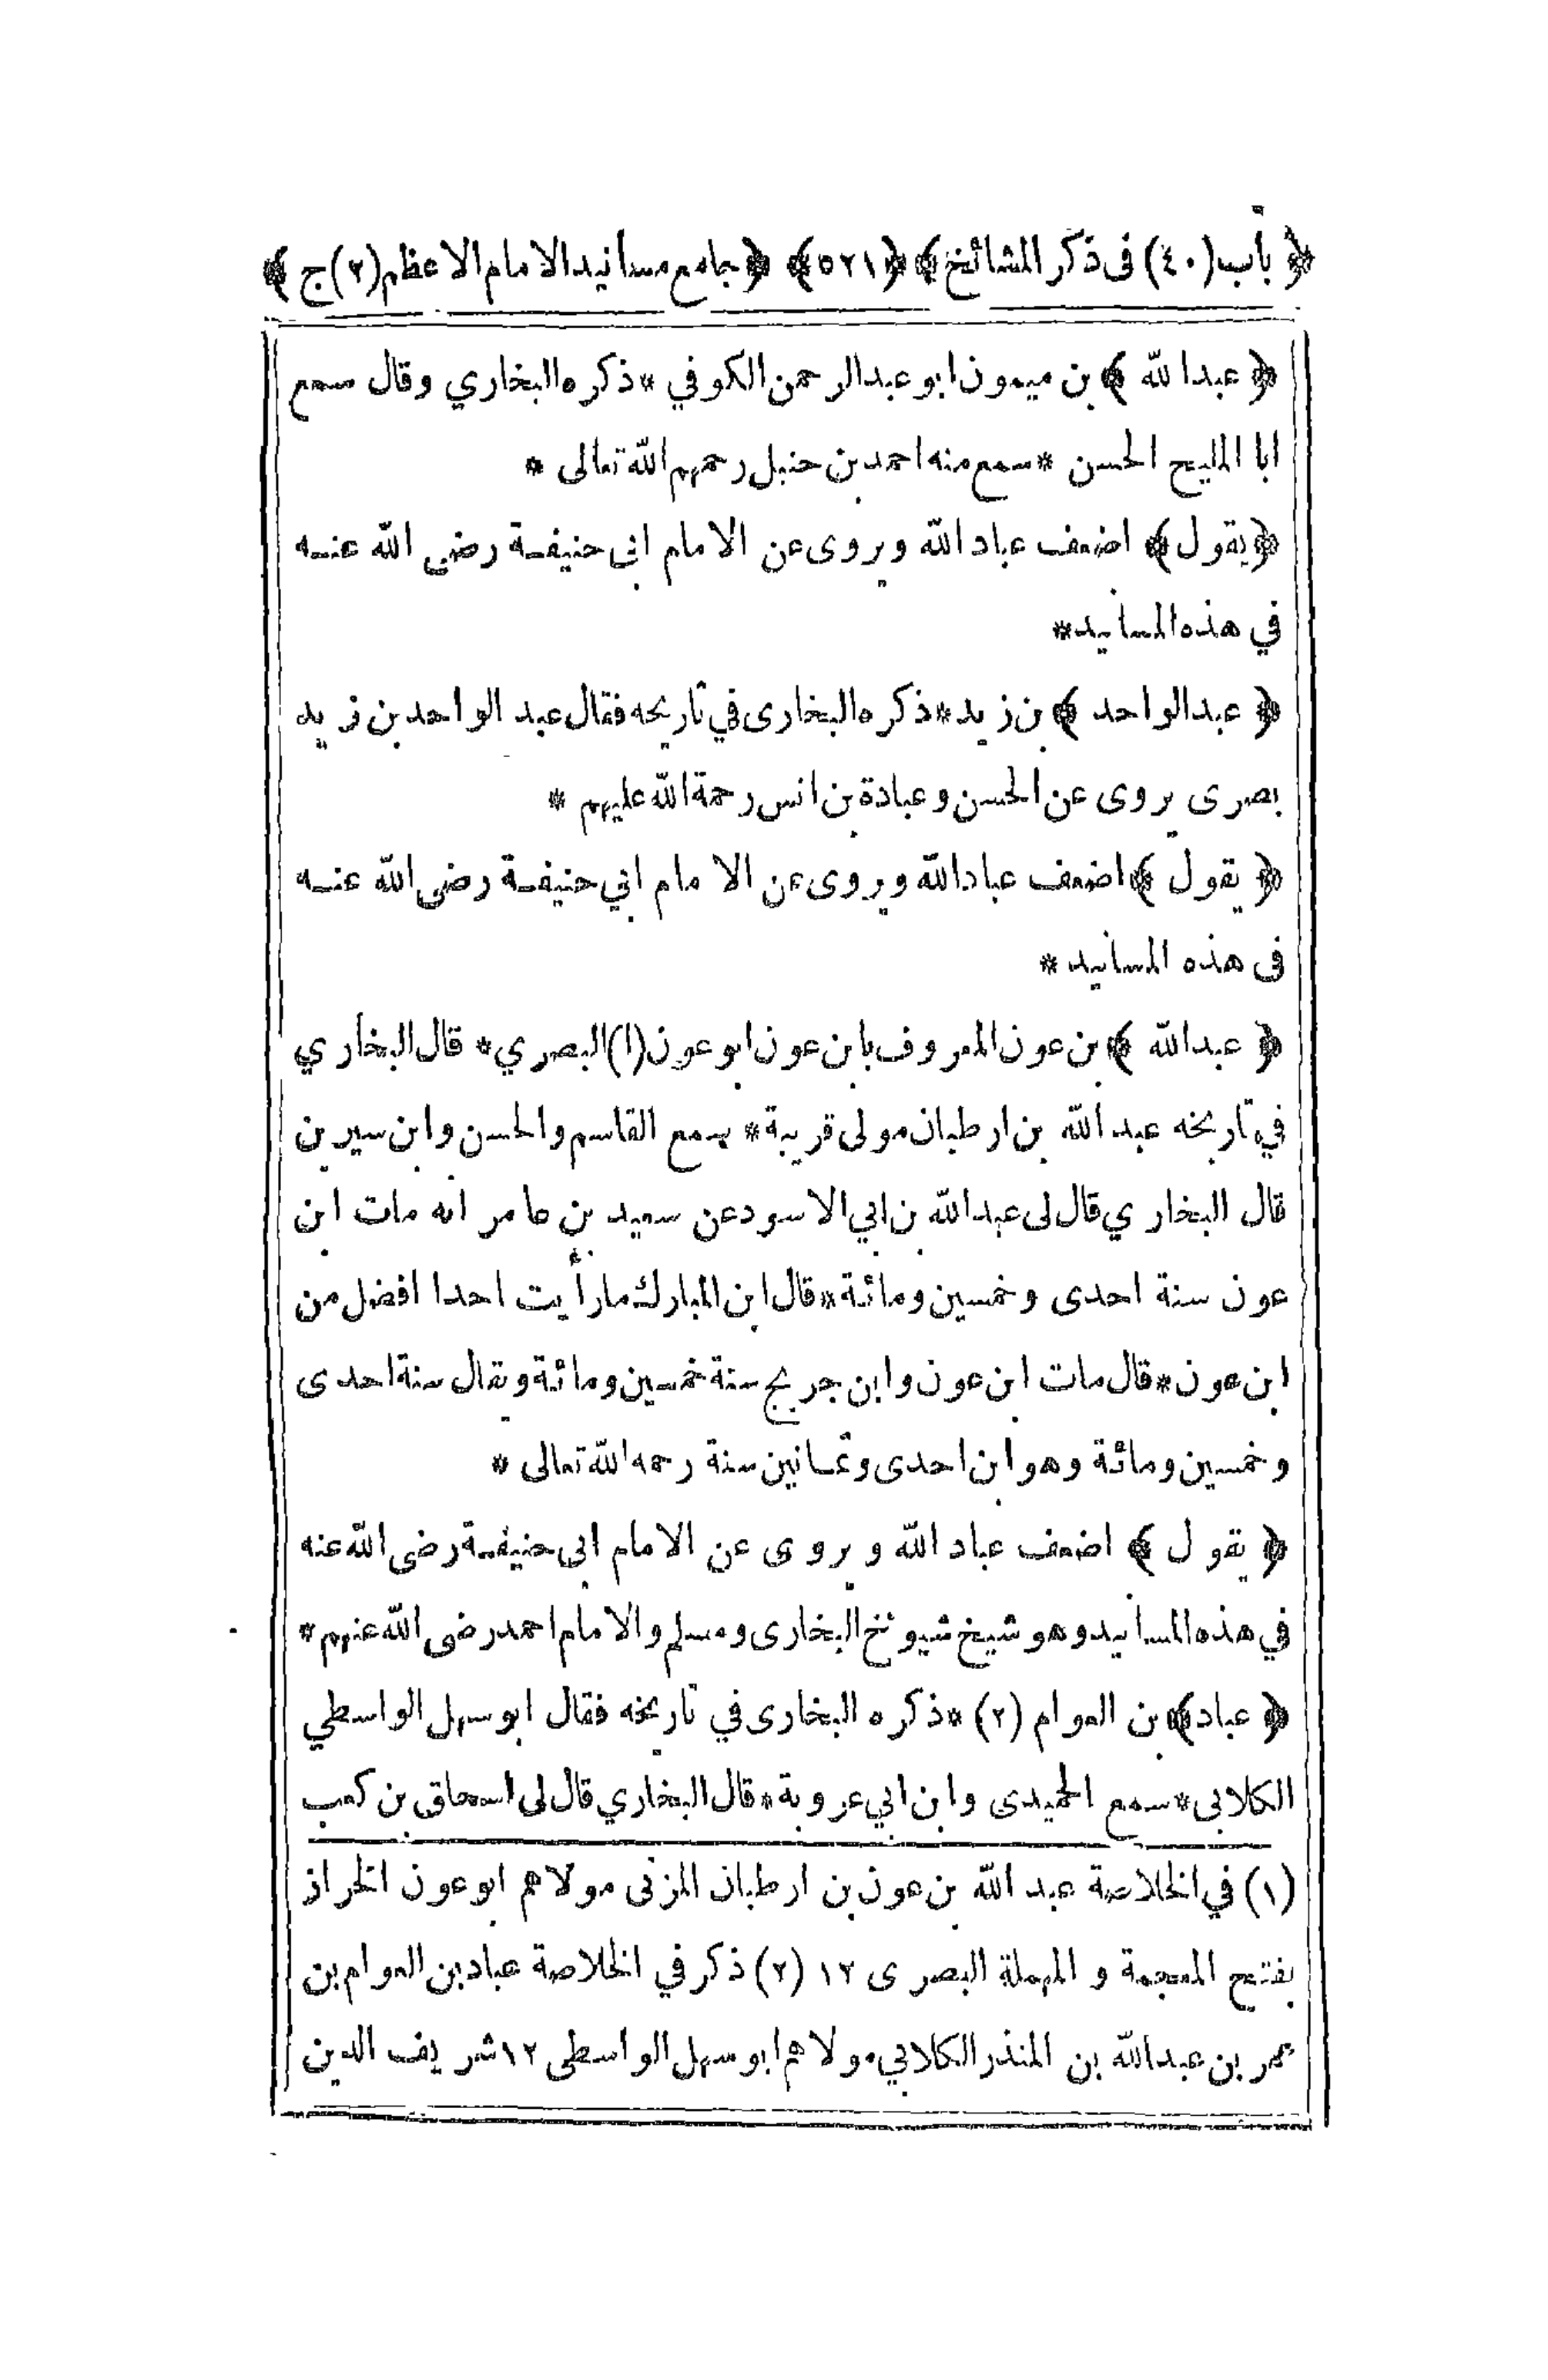 ﴿ باب (٤٠) فى ذكر المشائخ ﴾ ﴿ ٥٢١ ﴾ ﴿ جامع مسانيد الامام الاعظم (٢) ج ﴾
﴿ عبد الله ﴾ بن ميمون ابو عبد الرحمن الكوفي * ذكره البخاري وقال سمع
ابا المليح الحسن * سمع منه احمد بن حنبل رحمهم الله تعالى *
﴿ يقول ﴾ اضعف عباد الله ويروى عن الامام ابى حنيفة رضى الله عنه
في هذه المسانيد *
﴿ عبد الواحد ﴾ بن زيد * ذكره البخارى في تاريخه فقال عبد الواحد بن زيد
بصرى يروى عن الحسن وعبادة بن انس رحمة الله عليهم *
﴿ يقول ﴾ اضعف عباد الله ويروى عن الامام ابي حنيفة رضى الله عنه
فى هذه المسانيد *
﴿ عبد الله ﴾ بن عون المعروف بابن عون ابو عون (١) البصري * قال البخاري
في تاريخه عبد الله بن ارطبان مولى قريبة * سمع القاسم والحسن وابن سيرين
قال البخاري قال لى عبد الله بن ابي الاسود عن سعيد بن عامر انه مات ابن
عون سنة احدى وخمسين ومائة * قال ابن المبارك ما رأيت احدا افضل من
ابن عون * قال مات ابن عون وابن جريج سنة خمسين ومائة ويقال سنة احدى
وخمسين ومائة وهو ابن احدى وثمانين سنة رحمه الله تعالى *
﴿ يقول ﴾ اضعف عباد الله ويروى عن الامام ابى حنيفة رضى الله عنه
في هذه المسانيد وهو شيخ شيوخ البخارى ومسلم والامام احمد رضى الله عنهم *
﴿ عباد ﴾ بن العوام (٢) * ذكره البخارى في تاريخه فقال ابو سهل الواسطي
الكلابى * سمع الحميدى وابن ابي عروبة * قال البخاري قال لى اسحاق بن كعب
(١) في الخلاصة عبد الله بن عون بن ارطبان المزنى مولاهم ابو عون الخراز
بفتح المعجمة و المهملة البصرى ١٢ (٢) ذكر في الخلاصة عباد بن العوام بن
عمر بن عبد الله بن المنذر الكلابي مولاهم ابو سهل الواسطى ١٢ شريف الدين